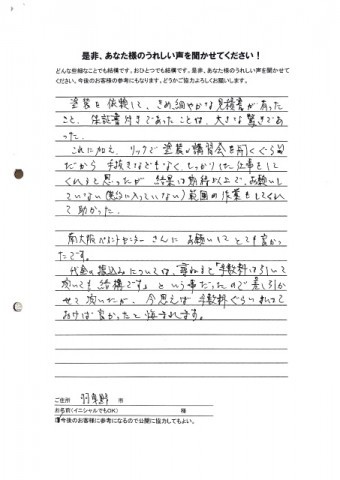 是非、あなた様のうれしい声を聞かせてください！
どんな些細なことでも結構です。おひとつでも結構です。是非、あなた様のうれしい声を聞かせて
ください。今後のお客様の参考にもなります。どうかご協力よろしくお願いします。
塗装を依頼して、きめ細やかな見積書があった
こと、保証書付きであったことは、大きな驚きであ
った。
これに加え、リックで塗装の講習会を開くぐらい
だから手抜きなどもなく、しっかり仕事をして
くれると思ったが結果は期待以上で、お願いし
ていない(見積に入っていない)範囲の作業もしてくれ
て助かった。
南大阪ペイントセンターさんにお願いしてとても良かっ
たです。
代金の振込みについては、尋ねると「手数料は引いて
頂いても結構です」という事だったので差し引か
せて頂いたが、今思えば手数料ぐらい払って
おけば良かったと悔まれます。
ご住所 羽曳野 市
お名前（イニシャルでもOK） 様
今後のお客様に参考になるので公開に協力してもよい。